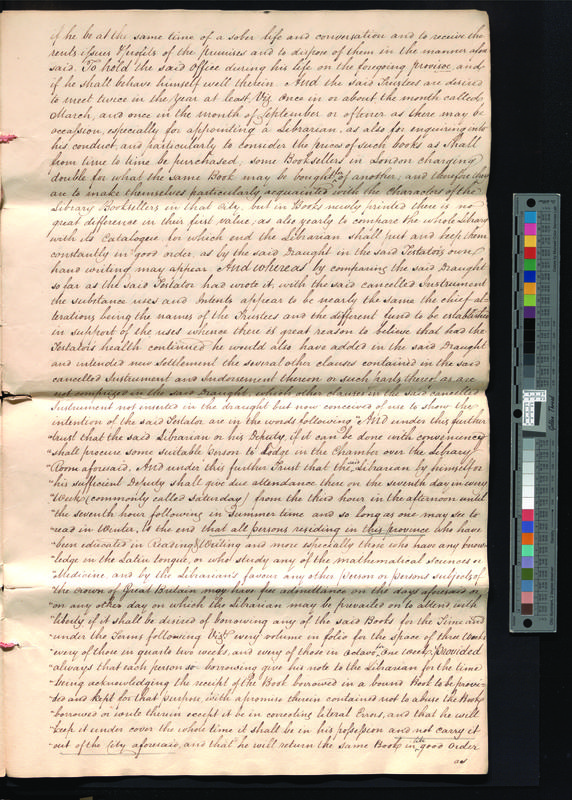 if he be at the same time of a sober life and conversation and to receive the
rents issues & profits of the premises and to dispose of them in the manner afore
said. To hold the said Office during his life on the foregoing provisoe, and
if he shall behave himself well therein. And the said Trustees are desired
to meet twice in the Year at least, Vizt once in or about the month called
March, and once in the month of September or oftener as there may be
occassion, especially for appointing a Librarian, as also for enquiring into
his conduct, and particularly to consider the prices of such books as shall
from time to time be purchased; some Booksellers in London charging
double for what the same Book may be bought of another; and therefore they
are to make themselves particularly acquainted with the Characters of the
Library Booksellers in that City, but in Books newly printed there is no
great difference in their first value; as also yearly to compare the whole Library
with its Catalogue, for which end the Librarian shall put and keep them
constantly in good order, as by the said Draught in the said Testators own
hand writing may appear. And whereas by comparing the said Draught
so far as the said Testator had wrote it, with the said cancelled Instrument
the substance uses and intents appear to be nearly the same the chief al-
terations being the names of the Trustees and the different fund to be established
in support of the uses whence there is great reason to believe that had the
Testators health continued he would also have added in the said Draught
and intended new Settlement the several other clauses contained in the said
cancelled Instrument and Indorsement thereon or such parts thereof as are
not comprised in the said Draught, which other clauses in the said cancelled
Instrument not inserted in the draught but now conceived of use to show the
intention of the said Testator are in the words following "And under this further
"trust that the said Librarian or his Deputy, if it can be done with conveniency
"shall procure some suitable Person to Lodge in the Chamber over the Library
"Room aforesaid. And under this further Trust that the said Librarian by himself or
"his sufficient Deputy shall give due attendance there on the seventh day in every
"Week (commonly called Saturday) from the third hour in the afternoon until
"the seventh hour following in Summer time and so long as one may see to
"read in Winter, to the end that all persons residing in this province who have
"been educated in Reading & Writing and more especially those who have any know-
"ledge in the Latin tongue, or who study any of the mathematical Sciences or
"Medicine, and by the Librarian's favour any other person or persons subjects of
"the Crown of Great Britain may have free admittance on the days aforesaid or
"on any other day on which the Librarian may be prevailed on to attend with
"liberty if it shall be desired of borrowing any of the said Books for the Time and
"under the Terms following Vizt every volume in folio for the space of three Weeks
"every of those in quarto two weeks, and every of those in octavo &c one week; Provided
"always that each person so borrowing give his note to the Librarian for the time
"being acknowledging the receipt of the Book borrowed in a bound Book to be provi-
"ded and kept for that Purpose, with a promise therein contained not to abuse the Book
"borrowed or write therein except it be in correcting literal Errors, and that he will
"keep it under cover the whole time it shall be in his possession and not carry it
"out of the City aforesaid, and that he will return the same Book in like good order
as